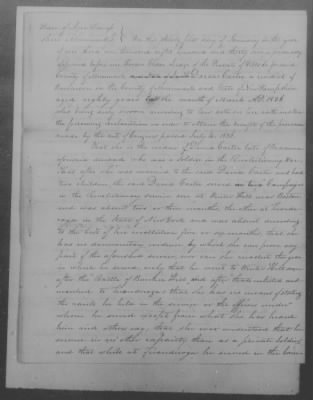 State of New Hampshire }
Merrimack ss. } On this thirty first day of January in the year
of our Lord one thousand eight hundred and thirty seven personally
appeared before me Horace Chase Judge of the Probate of Wills &c for said
County of Merrimack Dorcas Carter a resident of
in the County of Merrimack and State of New Hampshire
aged eighty years the month of March AD. 1836
who being duly sworn according to law doth on her oath make
the following declaration in order to obtain the benefit of the provision
made by the act of Congress passed July 4. 1836.
That she is the widow of Daniel Carter late of
deceased who was a Soldier in the Revolutionary War
that after she was married to the said Daniel Carter and had
two children the said Daniel Carter served in two Campaigns
in the Revolutionary service one at Winter Hill near Boston
and was absent two or three months, the other at Ticonde-
roga in the State of New York and was absent according
to the best of her recollection five or six months, that she
has no documentary evidence by which she can prove any
part of the aforesaid service, nor can she recollect the year
in which he served, only that he went to Winter Hill soon
after the Battle of Bunker Hill and after that enlisted and
marched to Ticonderoga & that she has no means of stating
the rank he held in the service or the officers under
whom he served except from what she has heard
him and others say, that she ever understood that he
served in no other capacity than as a private Soldier
and that while at Ticonderoga he served in the